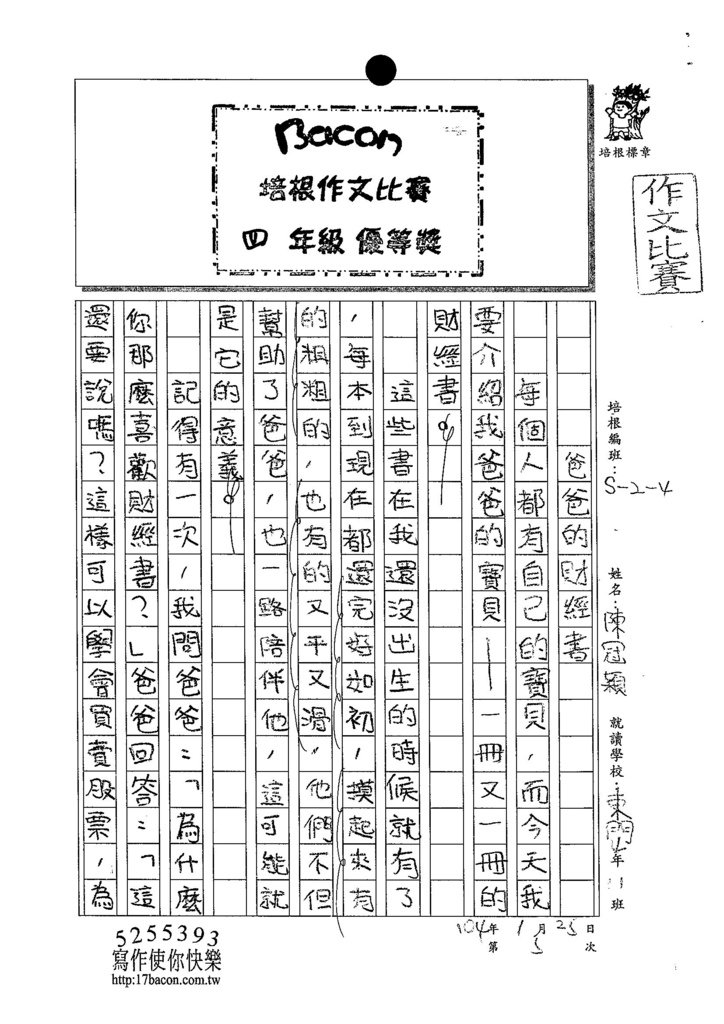 Bacon
培根作文比賽
四 年級 優等獎
培根標章
作文比賽
培根編班：S-2-4
姓名：陳冠穎
就讀學校：東門 年 班
爸爸的財經書
每個人都有自己的寶貝，而今天我
要介紹我爸爸的寶貝——一冊又一冊的
財經書。
這些書在我還沒出生的時候就有了
，每本到現在都還完好如初，摸起來有
的粗粗的，也有的又平又滑，他們不但
幫助了爸爸，也一路陪伴他，這可能就
是它的意義。
記得有一次，我問爸爸：「為什麼
你那麼喜歡財經書？」爸爸回答：「這
還要說嗎？這樣可以學會買賣股票，為
104年 1月 25日
第 5 次
5255393
寫作使你快樂
http://17bacon.com.tw